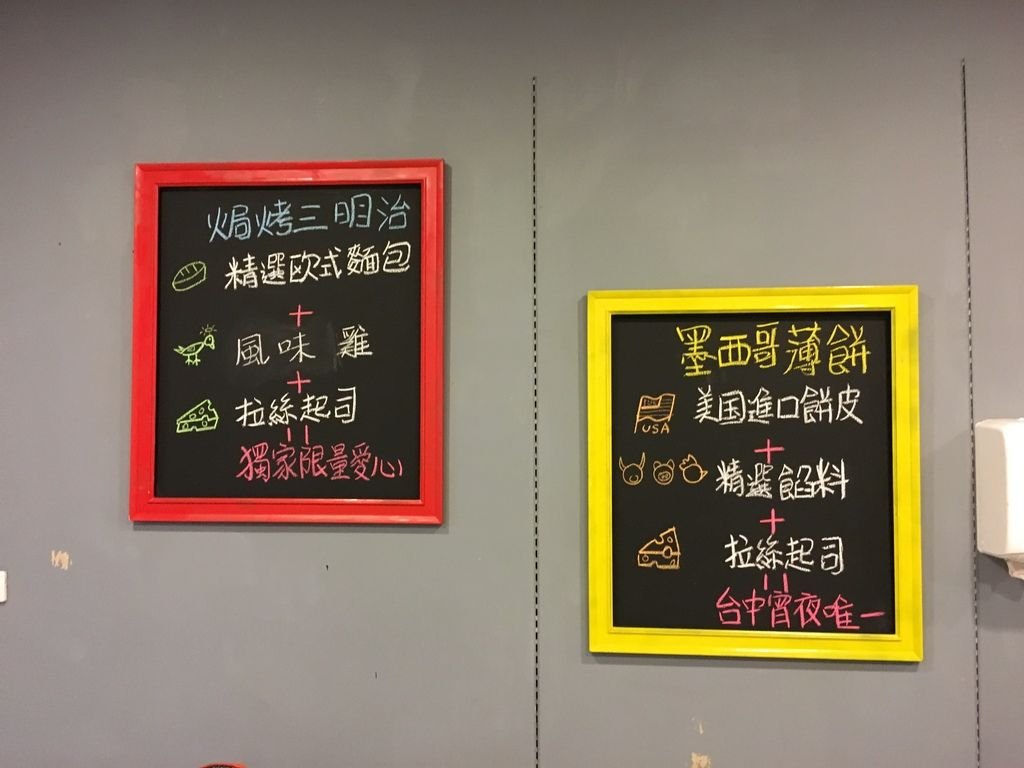 焗烤三明治
精選欧式麵包
+
風味 雞
+
拉絲起司
=
獨家限量愛心
墨西哥薄餅
美国進口餅皮
USA
+
精選餡料
+
拉絲起司
=
台中宵夜唯一